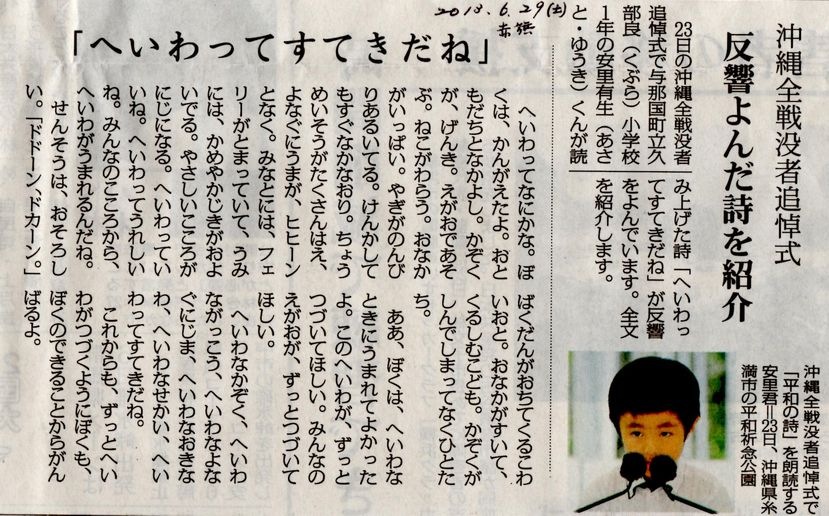 2013.6.29(土)
赤旗
沖縄全戦没者追悼式
反響よんだ詩を紹介
23日の沖縄全戦没者
追悼式で与那国町立久
部良(くぶら)小学校
1年の安里有生(あさ
と・ゆうき)くんが読
み上げた詩「へいわっ
てすてきだね」が反響
をよんでいます。全文
を紹介します。
「へいわってすてきだね」
へいわってなにかな。ぼ
くは、かんがえたよ。おと
もだちとなかよし。かぞく
が、げんき。えがおであそ
ぶ。ねこがわらう。おなか
がいっぱい。やぎがのんび
りあるいてる。けんかして
もすぐなかなおり。ちょう
めいそうがたくさんはえ、
よなぐにうまが、ヒヒーン
となく。みなとには、フェ
リーがとまっていて、うみ
には、かめやかじきがおよ
いでる。やさしいこころが
にじになる。へいわってい
いね。へいわってうれしい
ね。みんなのこころから、
へいわがうまれるんだね。
せんそうは、おそろし
い。「ドドーン、ドカーン。」
ばくだんがおちてくるこわ
いおと。おなかがすいて、
くるしむこども。かぞくが
しんでしまってなくひとた
ち。
ああ、ぼくは、へいわな
ときにうまれてよかった
よ。このへいわが、ずっと
つづいてほしい。みんなの
えがおが、ずっとつづいて
ほしい。
へいわなかぞく、へいわ
ながっこう、へいわなよな
ぐにじま、へいわなおきな
わ、へいわなせかい、へい
わってすてきだね。
これからも、ずっとへい
わがつづくようにぼくも、
ぼくのできることからがん
ばるよ。
沖縄全戦没者追悼式で
「平和の詩」を朗読する
安里君=23日、沖縄県糸
満市の平和祈念公園